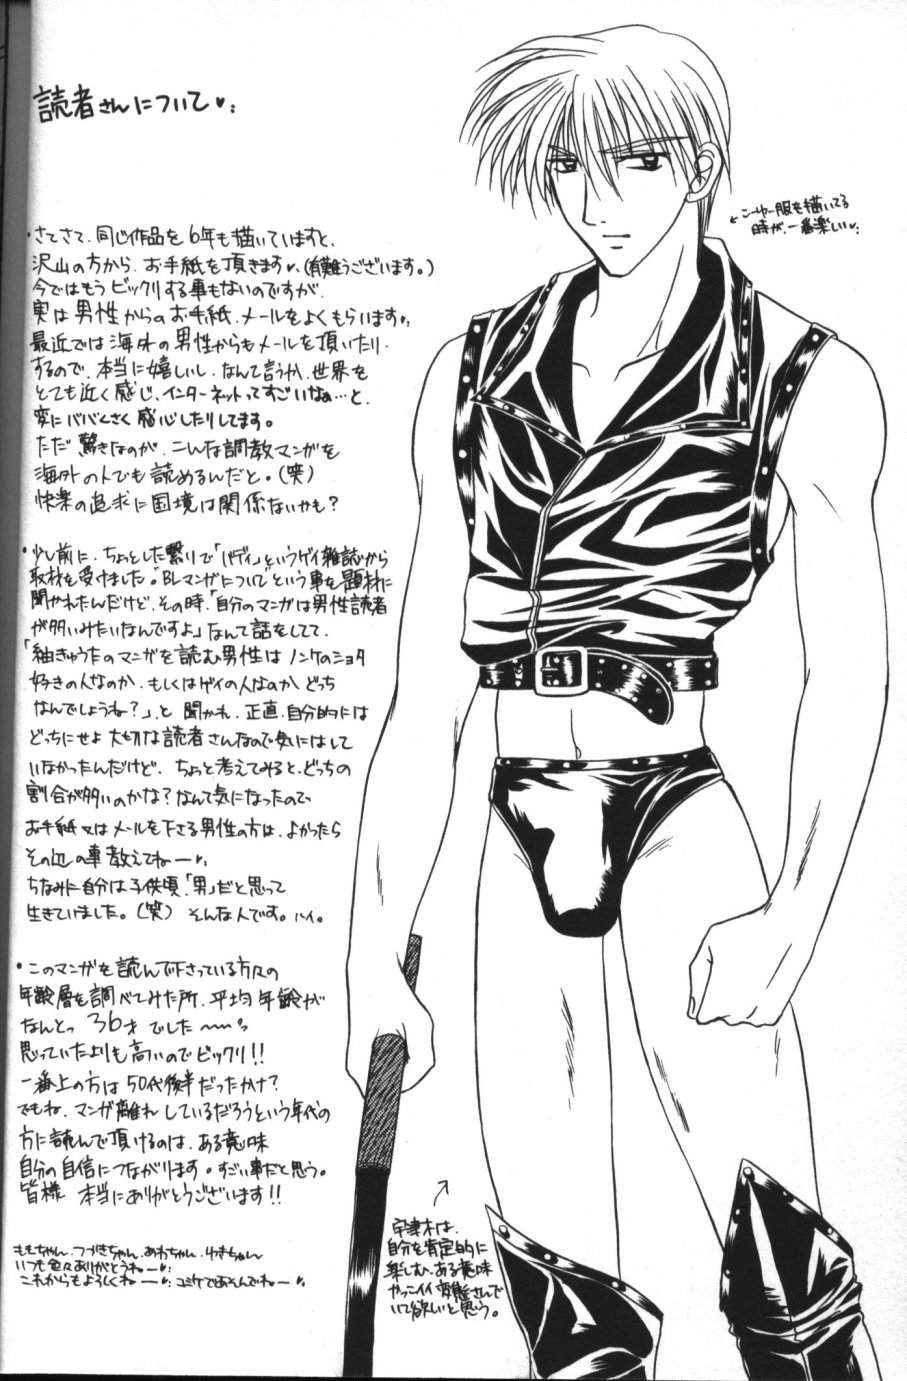 読者さんについて♥:
・さてさて、同じ作品を6年も描いていますと、
沢山の方から、お手紙を頂きます♥(有難うございます。)
今ではもうビックリする事もないのですが、
実は男性からのお手紙、メールをよくもらいます♥:
最近では海外の男性からもメールを頂いたり
するので、本当に嬉しいし、なんて言うか、世界を
とても近く感じ、インターネットってすごいなぁ…と、
変にババくさく感心したりしてます。
ただ驚きなのが、こんな調教マンガを
海外の人でも読めるんだと。(笑)
快楽の追求に国境は関係ないかも?
・少し前に、ちょっとした繋りで「バディ」というゲイ雑誌から
取材を受けました。"BLマンガについて"という事を題材に
聞かれたんだけど、その時、「自分のマンガは男性読者
が多いみたいなんですよ」なんて話をしてて、
「紬きゅうたのマンガを読む男性はノンケのショタ
好きの人なのか、もしくはゲイの人なのか、どっち
なんでしょうね?」、と聞かれ、正直、自分的には
どっちにせよ大切な読者さんなので気にはして
いなかったんだけど、ちょっと考えてみると、どっちの
割合が多いのかな?なんて気になったので
お手紙又はメールを下さる男性の方は、よかったら
その辺の事教えてねー♥:
ちなみに自分は子供頃、「男」だと思って
生きていました。(笑) そんな人です。ハイ。
・このマンガを読んで下さっている方々の
年齢層を調べてみた所、平均年齢が
なんとっ 36才でした〜〜っ
思っていたよりも高いのでビックリ!!
一番上の方は50代後半だったかナ?
でもね、マンガ離れしているだろうという年代の
方に読んで頂けるのは、ある意味
自分の自信につながります。すごい事だと思う。
皆様 本当にありがとうございます!!
ももちゃん、つづきちゃん、あわちゃん、ゆきちゃん
いつも色々ありがとうねー♥:
これからもよろしくねー♥: コミケであそんでねー♥:
←こーゆー服を描いてる
時が、一番楽しい♥:
宇津木は、
自分を肯定的に
楽しむ、ある意味
やっこイイ変態さんで
いて欲しいと思う。